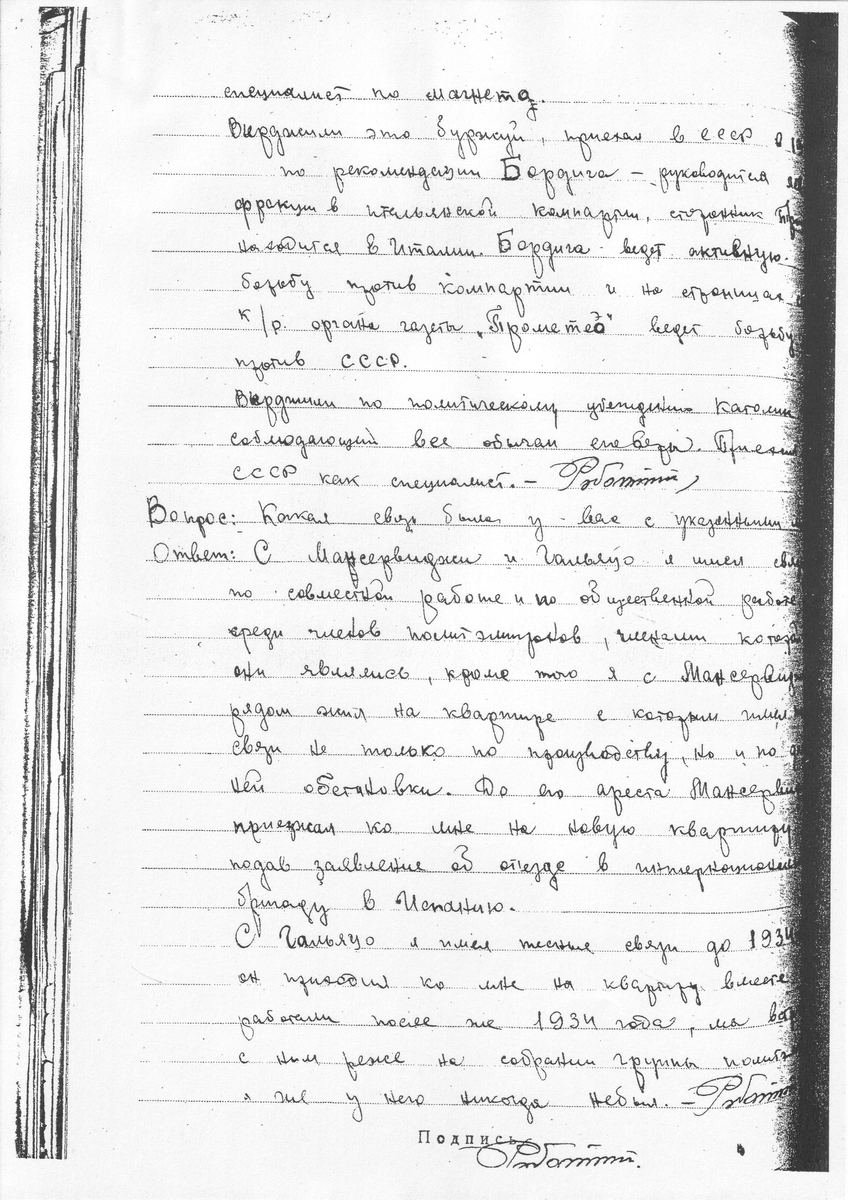 специалист по магнето.
Вырджили это буржуй, приехал в СССР в
по рекомендации Бордига – руководителя
фракции в итальянской компартии, сторонник
находится в Италии. Бордига ведет активную
борьбу против компартии и на страницах
к/р. органа газеты „Прометео" ведет борьбу
против СССР.
Вырджили по политическому убеждению католик
соблюдающий все обычаи его веры. Приехал
СССР как специалист. –
Вопрос: Какая связь была у вас с указанными
Ответ: С Мансервиджи и Гальяцо я имел связь
по совместной работе и по общественной работе
среди членов политэмигрантов, членами
они являлись, кроме того я с
рядом жил на квартире с которым имел
связи не только по производству, но и по
ней обстановки. До его ареста
приезжал ко мне на новую квартиру
подав заявление об отезде в
бригаду в Испанию.
С Гальяцо я имел тесные связи до 1934
он приходил ко мне на квартиру вместе
работали после же 1934 года, мы
с ним реже на собрании группы
я же у него никогда небыл. –
Подпись